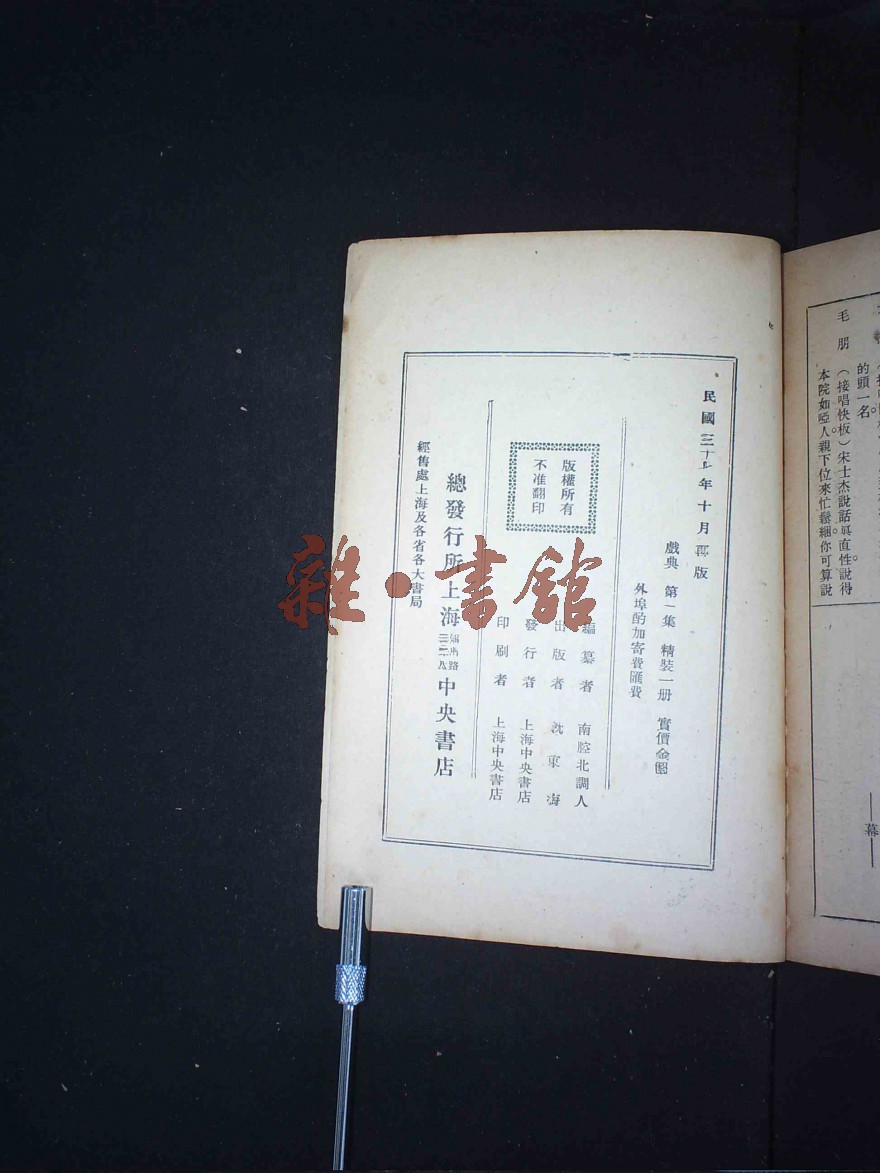 的頭一名。
毛朋 (接唱快板)宋士杰說話眞直性說得
本院如啞人。親下位來忙鬆綑。你可算說
幕
民國三十七年十月再版
戲典 第一集 精裝一册 實價金圓
外埠酌加寄費匯費
版權所有
不准翻印
編纂者 南腔北調人
出版者 沈東海
發行者 上海中央書店
印刷者 上海中央書店
總發行所上海 中央書店
經售處上海及各省各大書局
雜·書館